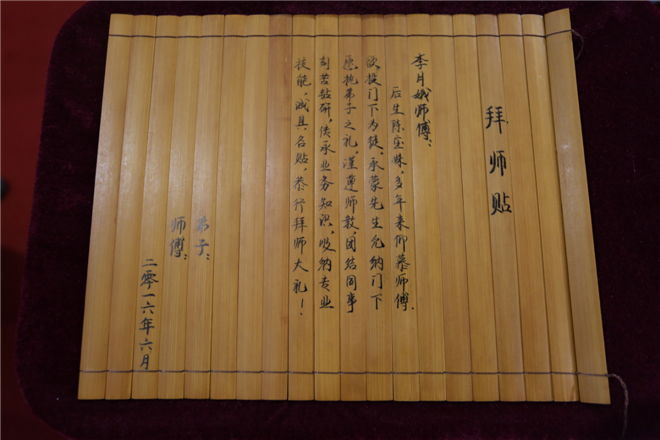 拜师贴
李月娥师傅:
后生陈宝妹,多年来仰慕师傅,
欲投门下为徒,承蒙先生允纳门下
愿执弟子之礼,谨遵师教,团结同事
刻苦钻研,传承业务知识,吸纳专业
技能,诚具名贴,恭行拜师大礼!
弟子:
师傅:
二零一六年六月